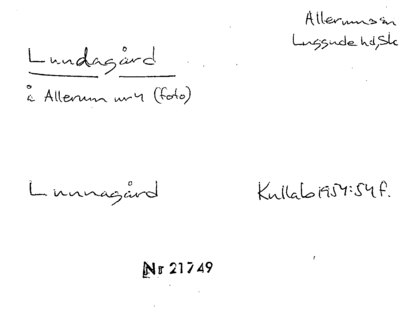 Allerums sn
Luggude hd, Sk
Lundagård
å Allerum nr 4 (foto)
Lunnagård
Kullab 1954:54 f.
Nr 21749